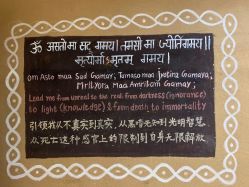 ॐ असतो मा सद् गमय। तमसो मा ज्योतिर्गमय।।
मृत्योर्मा मृतम् गमय।
om Asto maa Sad Gamay, Tamaso maa Jyotira Gamaya,
Mrityora Maa Amritam Gamay;
Lead me from unreal to the real. From darkness (ignorance)
to light (knowledge) & from death to immortality
引领我从不真实到真实，从黑暗无知到光明智慧，
从死亡这种感官上的限制到自身无限解放